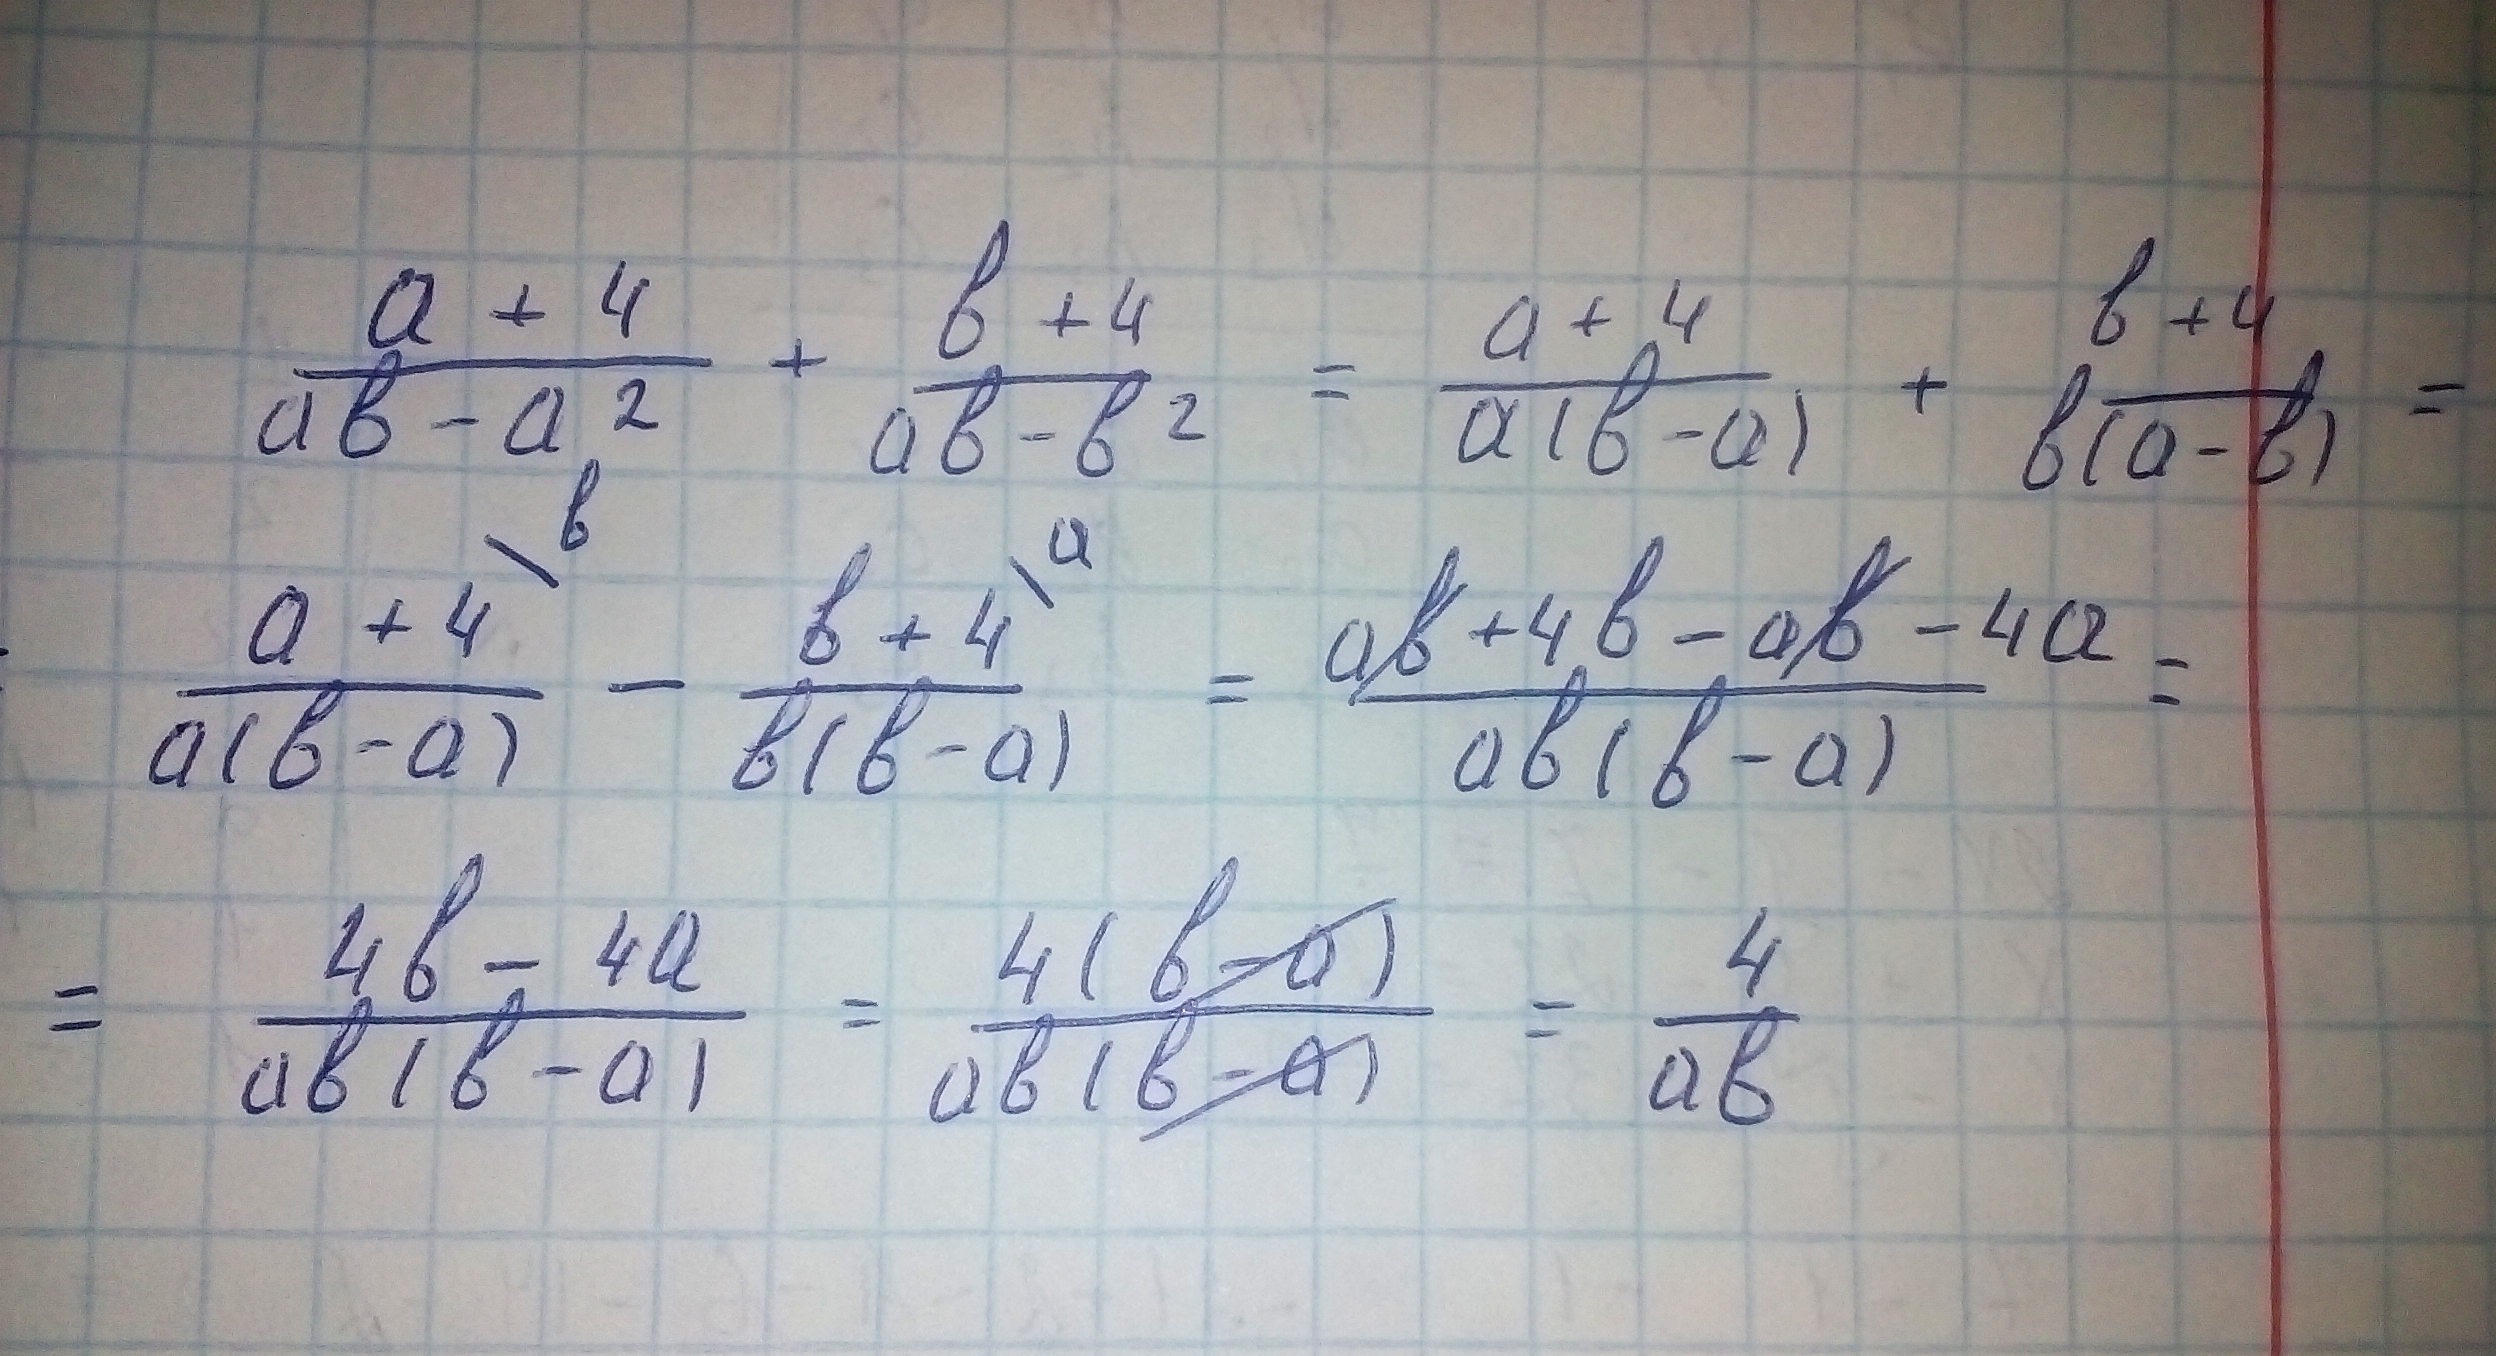 a + 4 / ab - a² + b + 4 / ab - b² = a + 4 / a(b - a) + b + 4 / b(a - b) =
a + 4 \ b / a(b - a) - b + 4 \ a / b(b - a) = ab + 4b - ab - 4a / ab(b - a) =
= 4b - 4a / ab(b - a) = 4(b - a) / ab(b - a) = 4 / ab